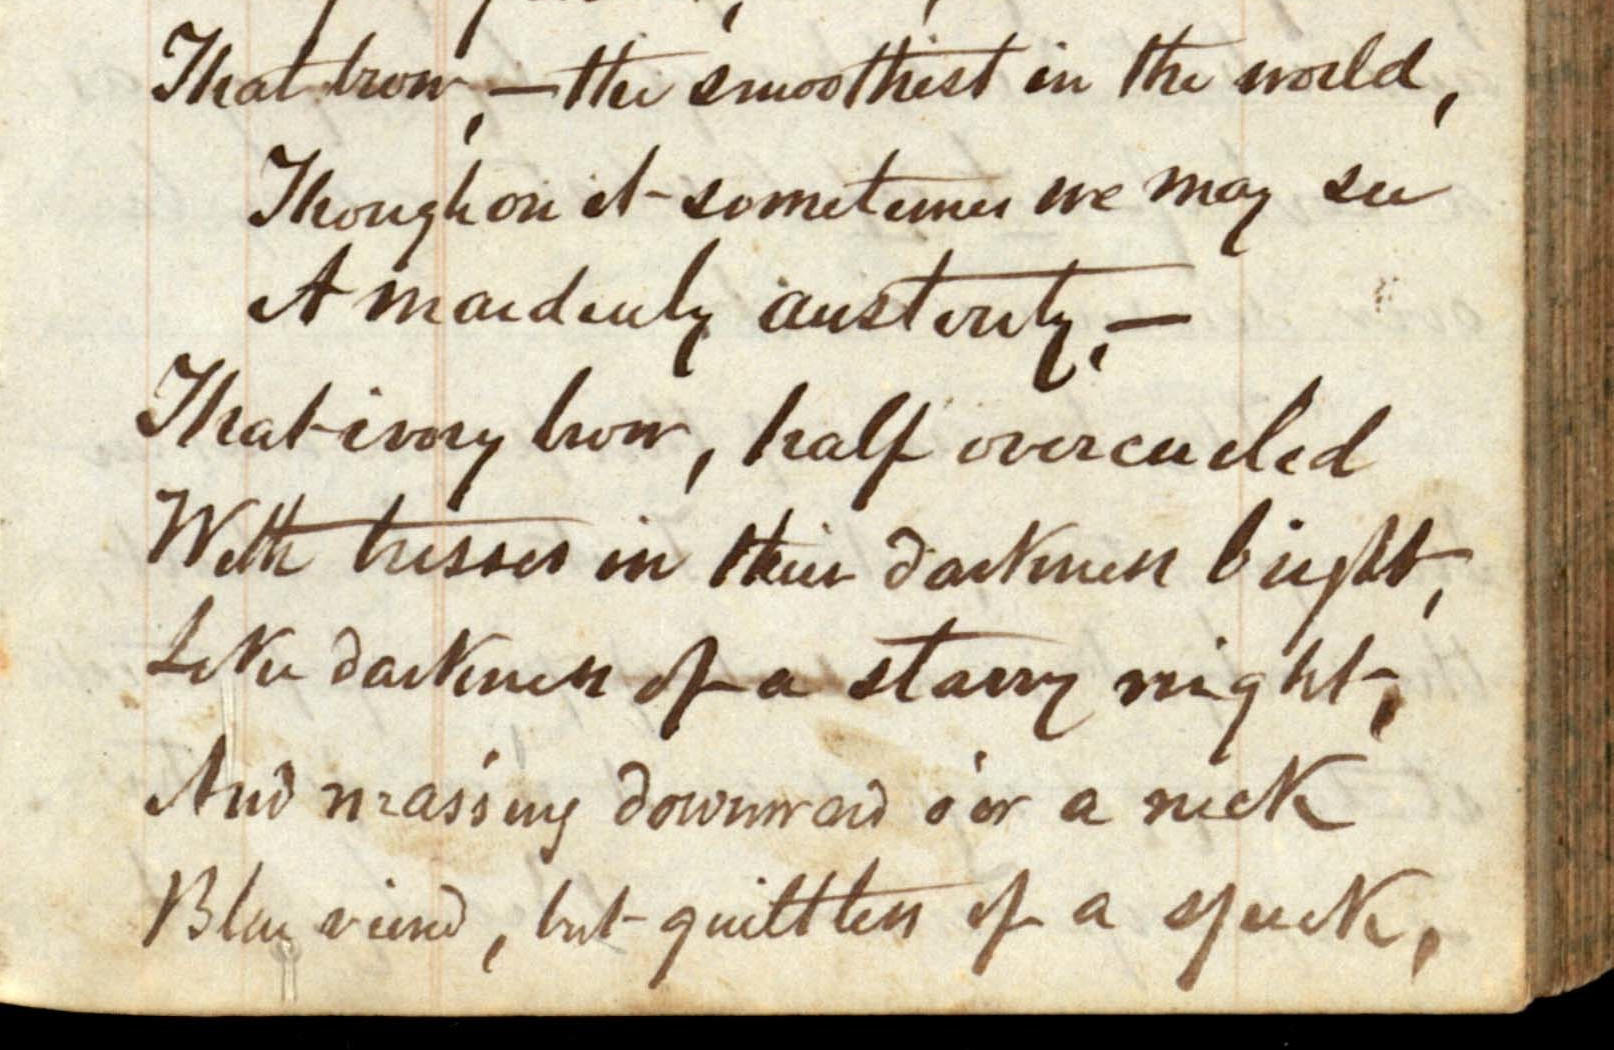 That brow, — the smoothest in the world,
Though on it sometimes we may see
A maidenly austerity, —
That ivory brow, half overcurled
With tresses in their darkness bright,
Like darkness of a starry night,
And massing downward o'er a neck
Blue veined, but guiltless of a speck,